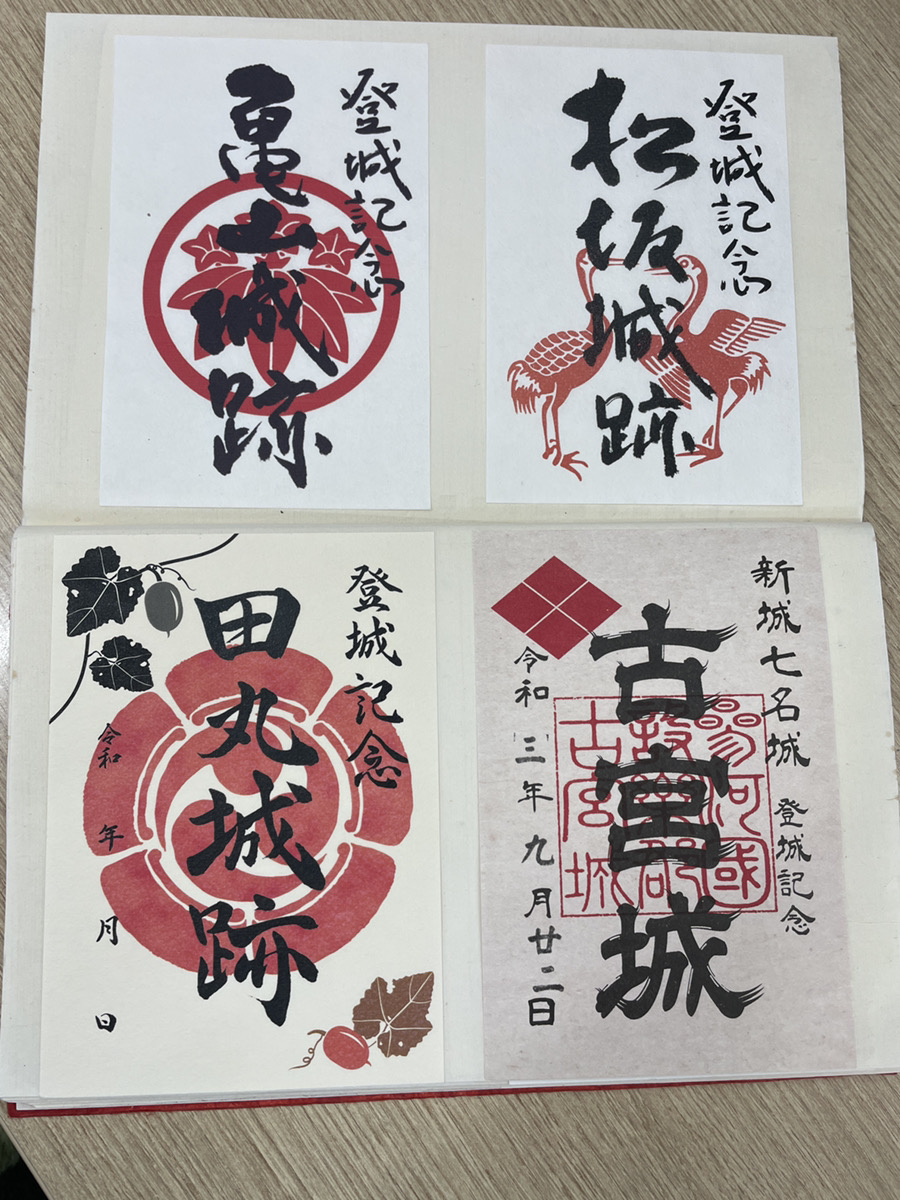 登城記念
亀山城跡
登城記念
松坂城跡
登城記念
田丸城跡
令和 年 月 日
新城七名城 登城記念
古宮城
參河國
設樂郡
古宮城
令和三年九月廿二日